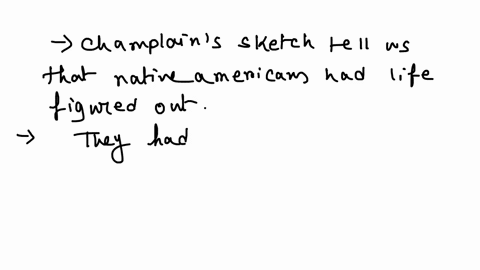 → Champlain's sketch tell us
that native americans had life
figured out.
→ They had